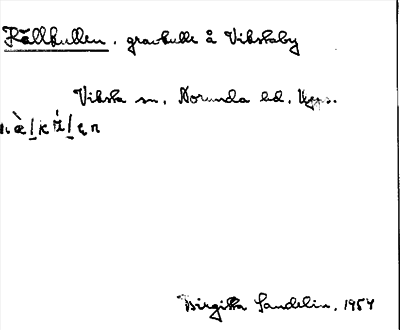 Källkullen, gravkulle å Vikstaby
Viksta sn, Norunda hd, Upps.
Birgitta Sandelin, 1954